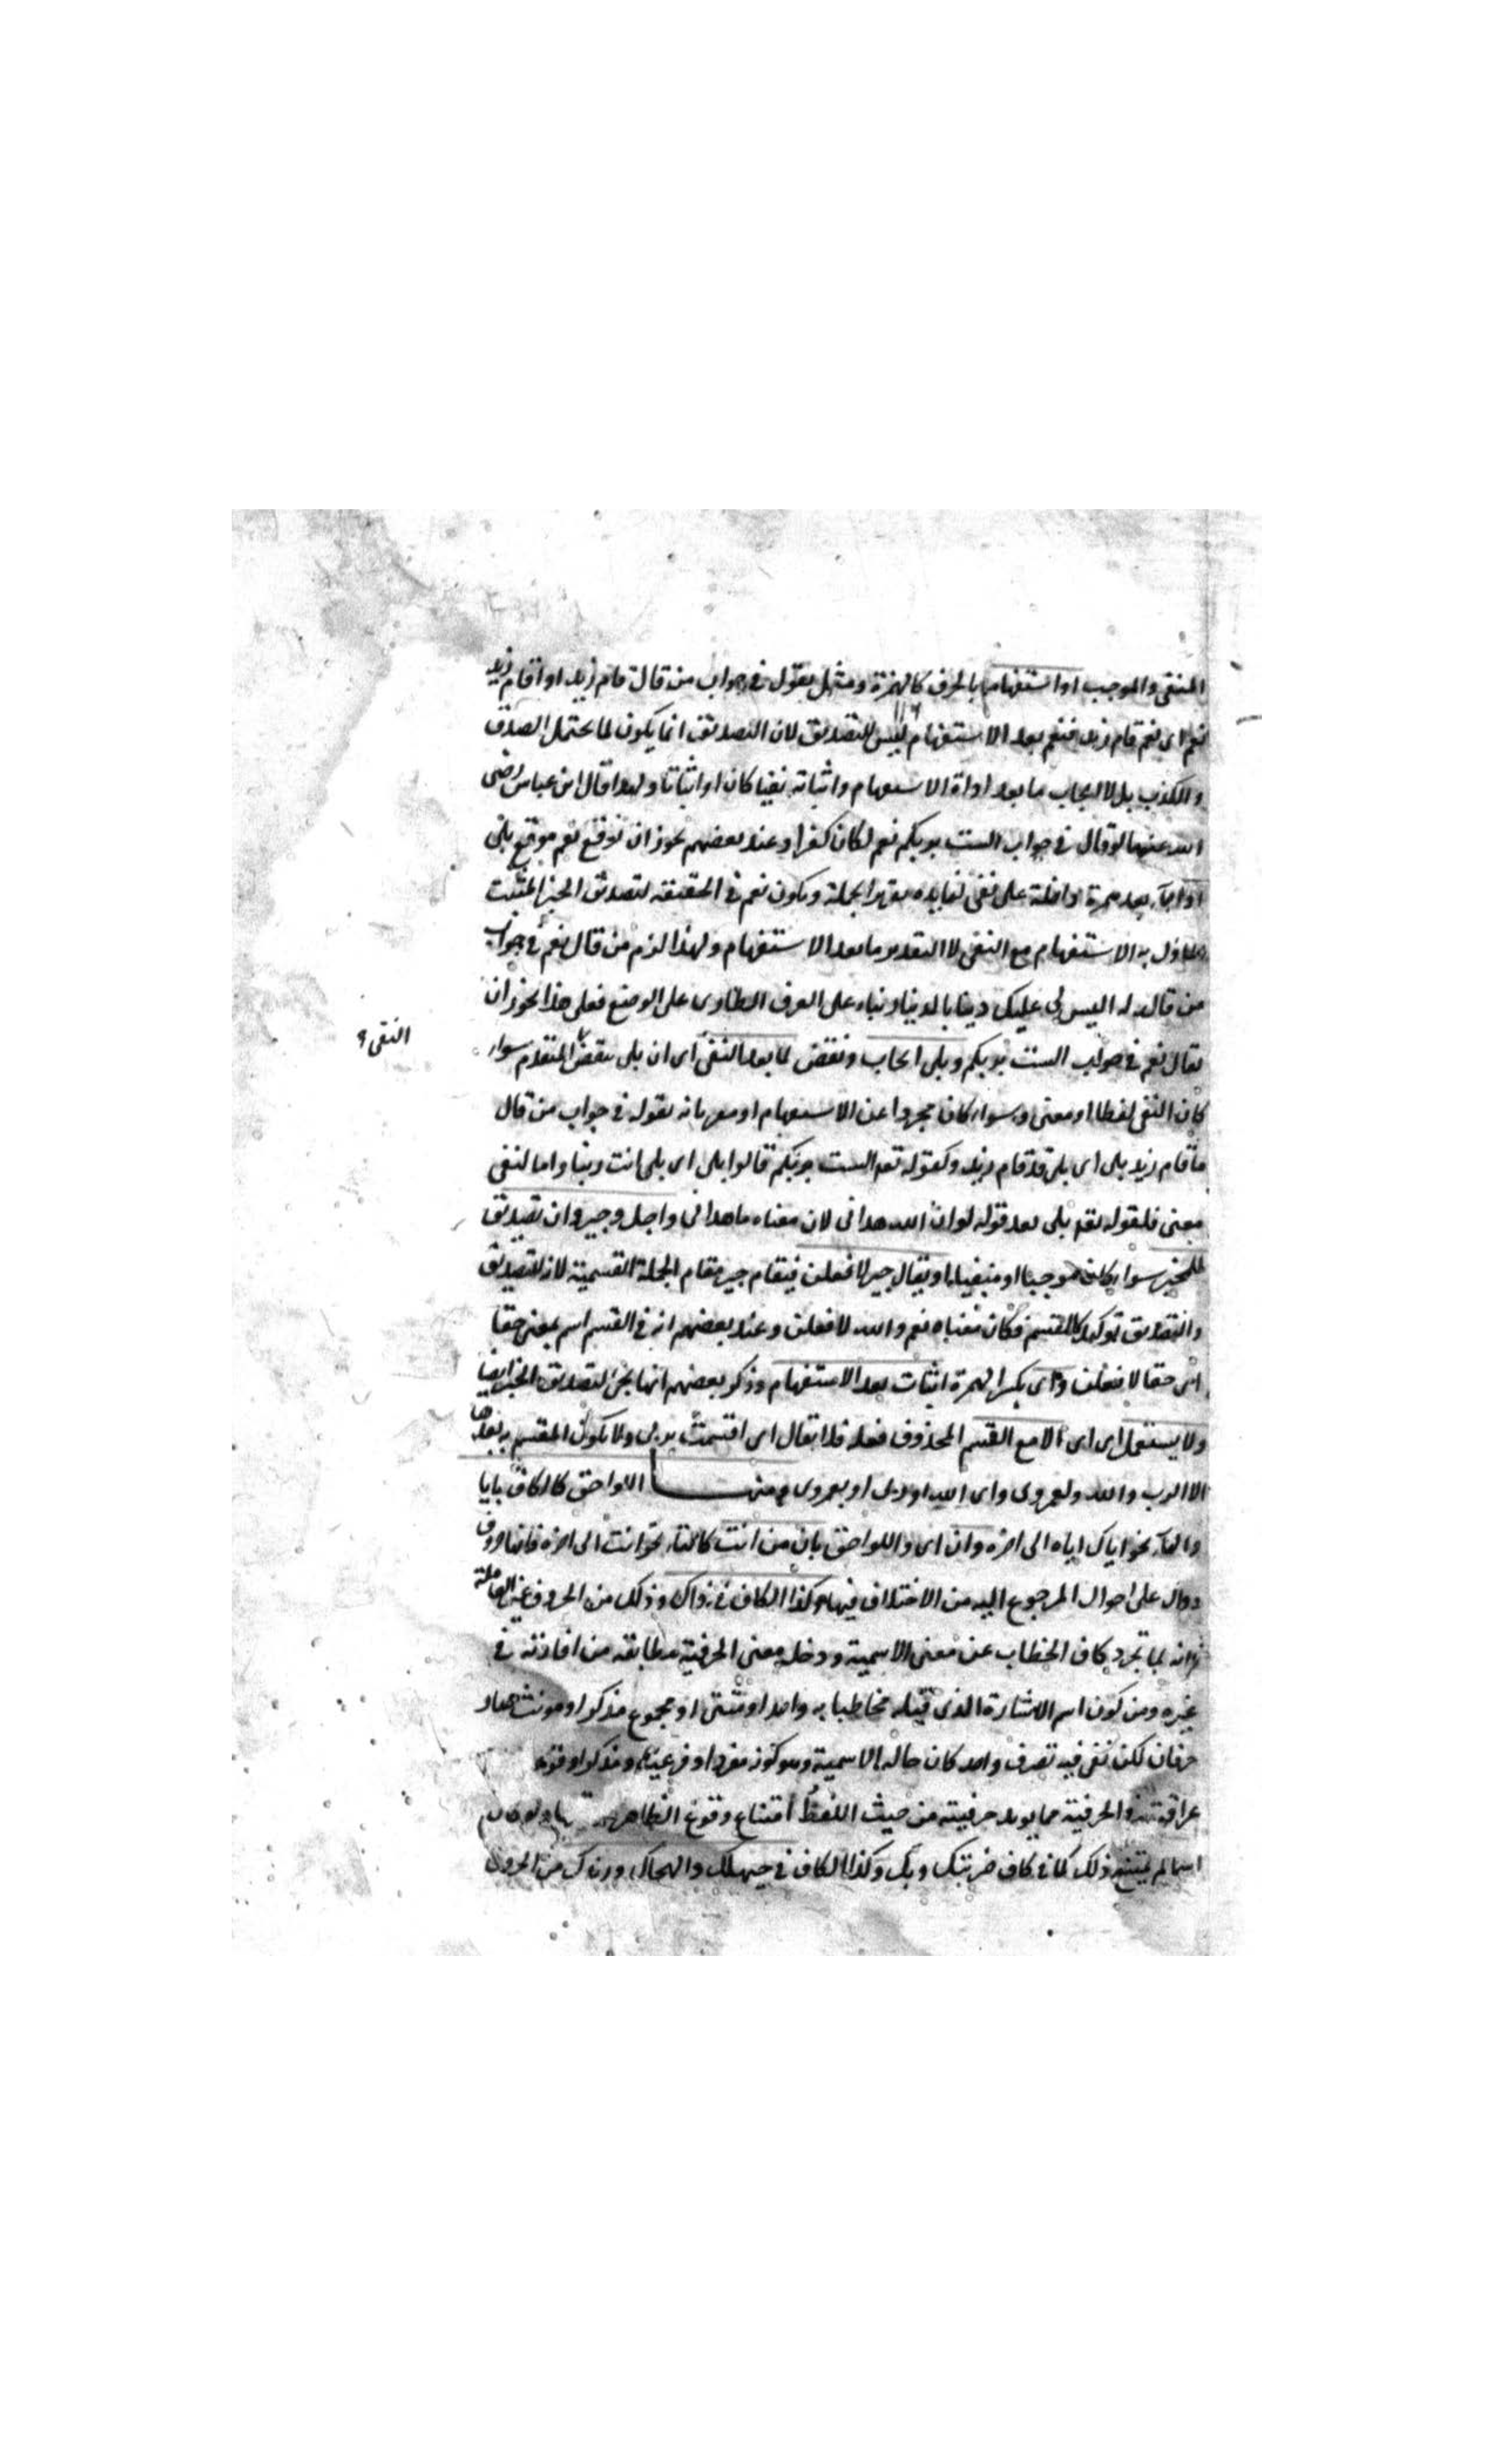 المنفى والموجب او استفهاما بالحرف كالهمزة ومثل يقول فى جواب من قال قام زيد او اقام زيد
نعم اى نعم قام زيد فنعم بعد الاستفهام ليس للتصديق لان التصديق انما يكون لما يحتمل الصدق
والكذب بل لايجاب ما بعد اداة الاستفهام واثباته نفيا كان او اثباتا ولهذا قال ابن عباس رضى
الله عنهما لو قال فى جواب الست بربكم نعم لكان كفرا وعند بعضهم يجوز ان توقع نعم موقع بلى
اذا جاء بعد همزة داخلة على نفى لفايدة الجملة ويكون نعم فى الحقيقة لتصديق الخبر المثبت
به الاستفهام مع النفى لا لتقدير ما بعد الاستفهام ولهذا لزم من قال نعم فى جواب
من قال له اليس لى عليك دينا بالدينار بناء على العرف الطارى على الوضع فعلى هذا يجوز ان
يقال نعم فى جواب الست بربكم وبلى ايجاب ونقض لما بعد النفى اى ان بلى ينقض المتقدم سواء
النفى
كان النفى لفظا او معنى وسواء كان مجردا عن الاستفهام او مقرونا به يقوله فى جواب من قال
ما قام زيد بلى اى بلى قد قام زيد وكقوله تعه الست بربكم قالوا بلى اى بلى انت ربنا واما لنفى
معنى فلقوله تعه بلى بعد قوله لو ان الله هدانى لان معناه ما هدانى واجل وجير وان تصديق
للمخبر سواء كان موجبا او منفيا او يقال جير لافعلن فيقام جير مقام الجملة القسمية لان للتصديق
والتصديق توكيد كالقسم فكان معناه نعم والله لافعلن وعند بعضهم انه فى القسم اسم بمعنى حقا
اى حقا لافعلن واى بكسر الهمزة اثبات بعد الاستفهام وذكر بعضهم انها يجئ لتصديق الخبر ايضا
ولا يستعمل اى اى الا مع القسم المحذوف فعله فلا يقال اى اقسمت بربى ولا يكون المقسم به بعدها
الا الرب والله ولعمرى واى الله اوربى او لعمرى ومنها اللواحق كالكاف بايا
والهاء نحو اياك اياه الى اخره وان اى واللواحق بان من انت كالتاء نحو انت الى اخره فانها حروف
دوال على احوال المرجوع اليه من الاختلاف فيها وكذا الكاف فى ذاك وذلك من الحروف غير العاملة
فانه لما تجرد كاف الخطاب عن معنى الاسمية ودخله معنى الحرفية مطابقه من افادته فى
غيره ومن كون اسم الاشارة الذى قبله مخاطبا به واحد او مثنى او مجموع مذكرا او مونث صار
حرفان لكن بقى فيه تصرف واحد كان حاله الاسمية وهو كونه مفردا و مذكرا و
والحرفية مما يويد حرفيته من حيث اللفظ امتناع وقوع الظاهر
اسما لم يمتنع ذلك كما فى كاف ضربتك وبك وكذا الكاف فى حيهلك والنجاك ورويدك من الحروف